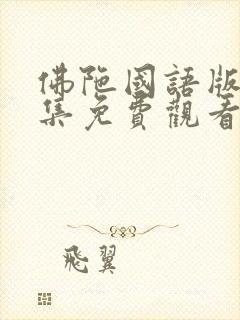 佛陁國語版
集免費觀看
飛翼